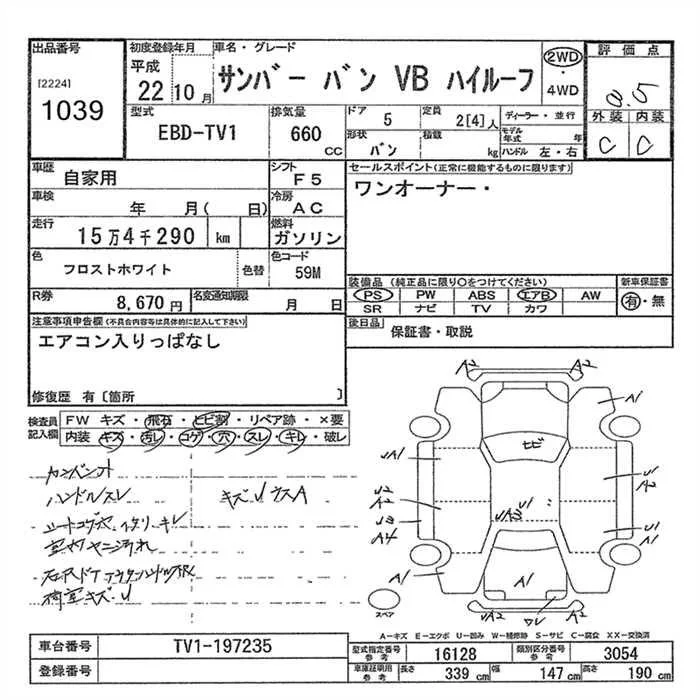 出品番号 初度登録年月 車名・グレード 評価点
[2224] 平成 サンバー バン VB ハイルーフ 2WD
1039 22 10月 ・4WD
型式 排気量 ドア 定員 ディーラー・並行 外装 内装
EBD-TV1 660 CC 5 2[4]人 モデル年式 年 C C
形状 バン 積載 kg ハンドル 左・右
車歴 自家用 シフト F5 セールスポイント(正常に機能するものに限ります)
車検 年 月( 日) 冷房 AC ワンオーナー・
走行 15万4千290 km 燃料 ガソリン
色 フロストホワイト 色替 色コード 59M
装備品 (純正品に限り○をつけてください) 新車保証書
R券 8,670円 名変通知期限 月 日 PS PW ABS エアB AW 有・無
SR ナビ TV カワ
注意事項申告欄(不具合内容等は具体的に記入して下さい) 後日品 保証書・取説
エアコン入りっぱなし
修復歴 有〔箇所 〕
検査員記入欄 FW キズ・飛石・ヒビ割・リペア跡・×要
内装 キズ・汚レ・コゲ・穴・スレ・キレ・破レ
A2 A2
A1
ヒビ
UA1 U1
カンバント
ハンドルスレ キズUウスA
U2 A2 U1 A2
UA3
U3 A4 U1 A1
シートコゲ穴
室内ヤニ汚れ
荷室キズ・U
A1 A1 A1
スペア
A2 A2
A-キズ E-エクボ U-凹み W-補修跡 S-サビ C-腐食 XX-交換済
車台番号 TV1-197235 型式指定番号 参考 16128 類別区分番号 参考 3054
登録番号 車庫証明用 参考 長さ 339 cm 幅 147 cm 高さ 190 cm